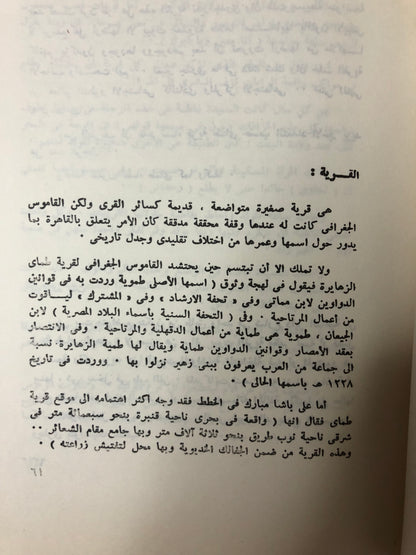 القـــرية :
هى قرية صغيرة متواضعة ، قديمة كسائر القرى ولكن القاموس
الجغرافى كانت له عندها وقفة محققة مدققة كأن الأمر يتعلق بالقاهرة بما
يدور حول اسمها وعمرها من اختلاف تقليدى وجدل تاريخى ·
ولا تملك الا أن تبتسم حين يحتشد القاموس الجغرافى لقرية طماى
الزهايرة فيقول فى لهجة وثوق ( اسمها الأصلى طموية وردت به فى قوانين
الدواوين لابن مماتى وفى « تحفة الارشاد » وفى « المشترك » لياقوت
من أعمال المرتاحية · وفى ( التحفة السنية بأسماء البلاد المصرية ) لابن
الجيعان ، طموية هى طماية من أعمال الدقهلية والمرتاحية · وفى الانتصار
بعقد الأمصار وقوانين الدواوين طماية ويقال لها طمية الزهايرة نسبة
الى جماعة من العرب يعرفون ببنى زهير نزلوا بها · ووردت فى تاريخ
١٢٢٨ هـ باسمها الحالى ) ·
أما على باشا مبارك فى الخطط فقد وجه أكثر اهتمامه الى موقع قرية
طماى فقال انها ( واقعة فى بحرى ناحية قنبرة بنحو سبعمائة متر فى
شرقى ناحية نوب طريق بنحو ثلاثة آلاف متر وبها جامع مقام الشعائر ··
وهذه القرية من ضمن الجفالك الخديوية وبها محل لتفتيش زراعته ) ·
٦١